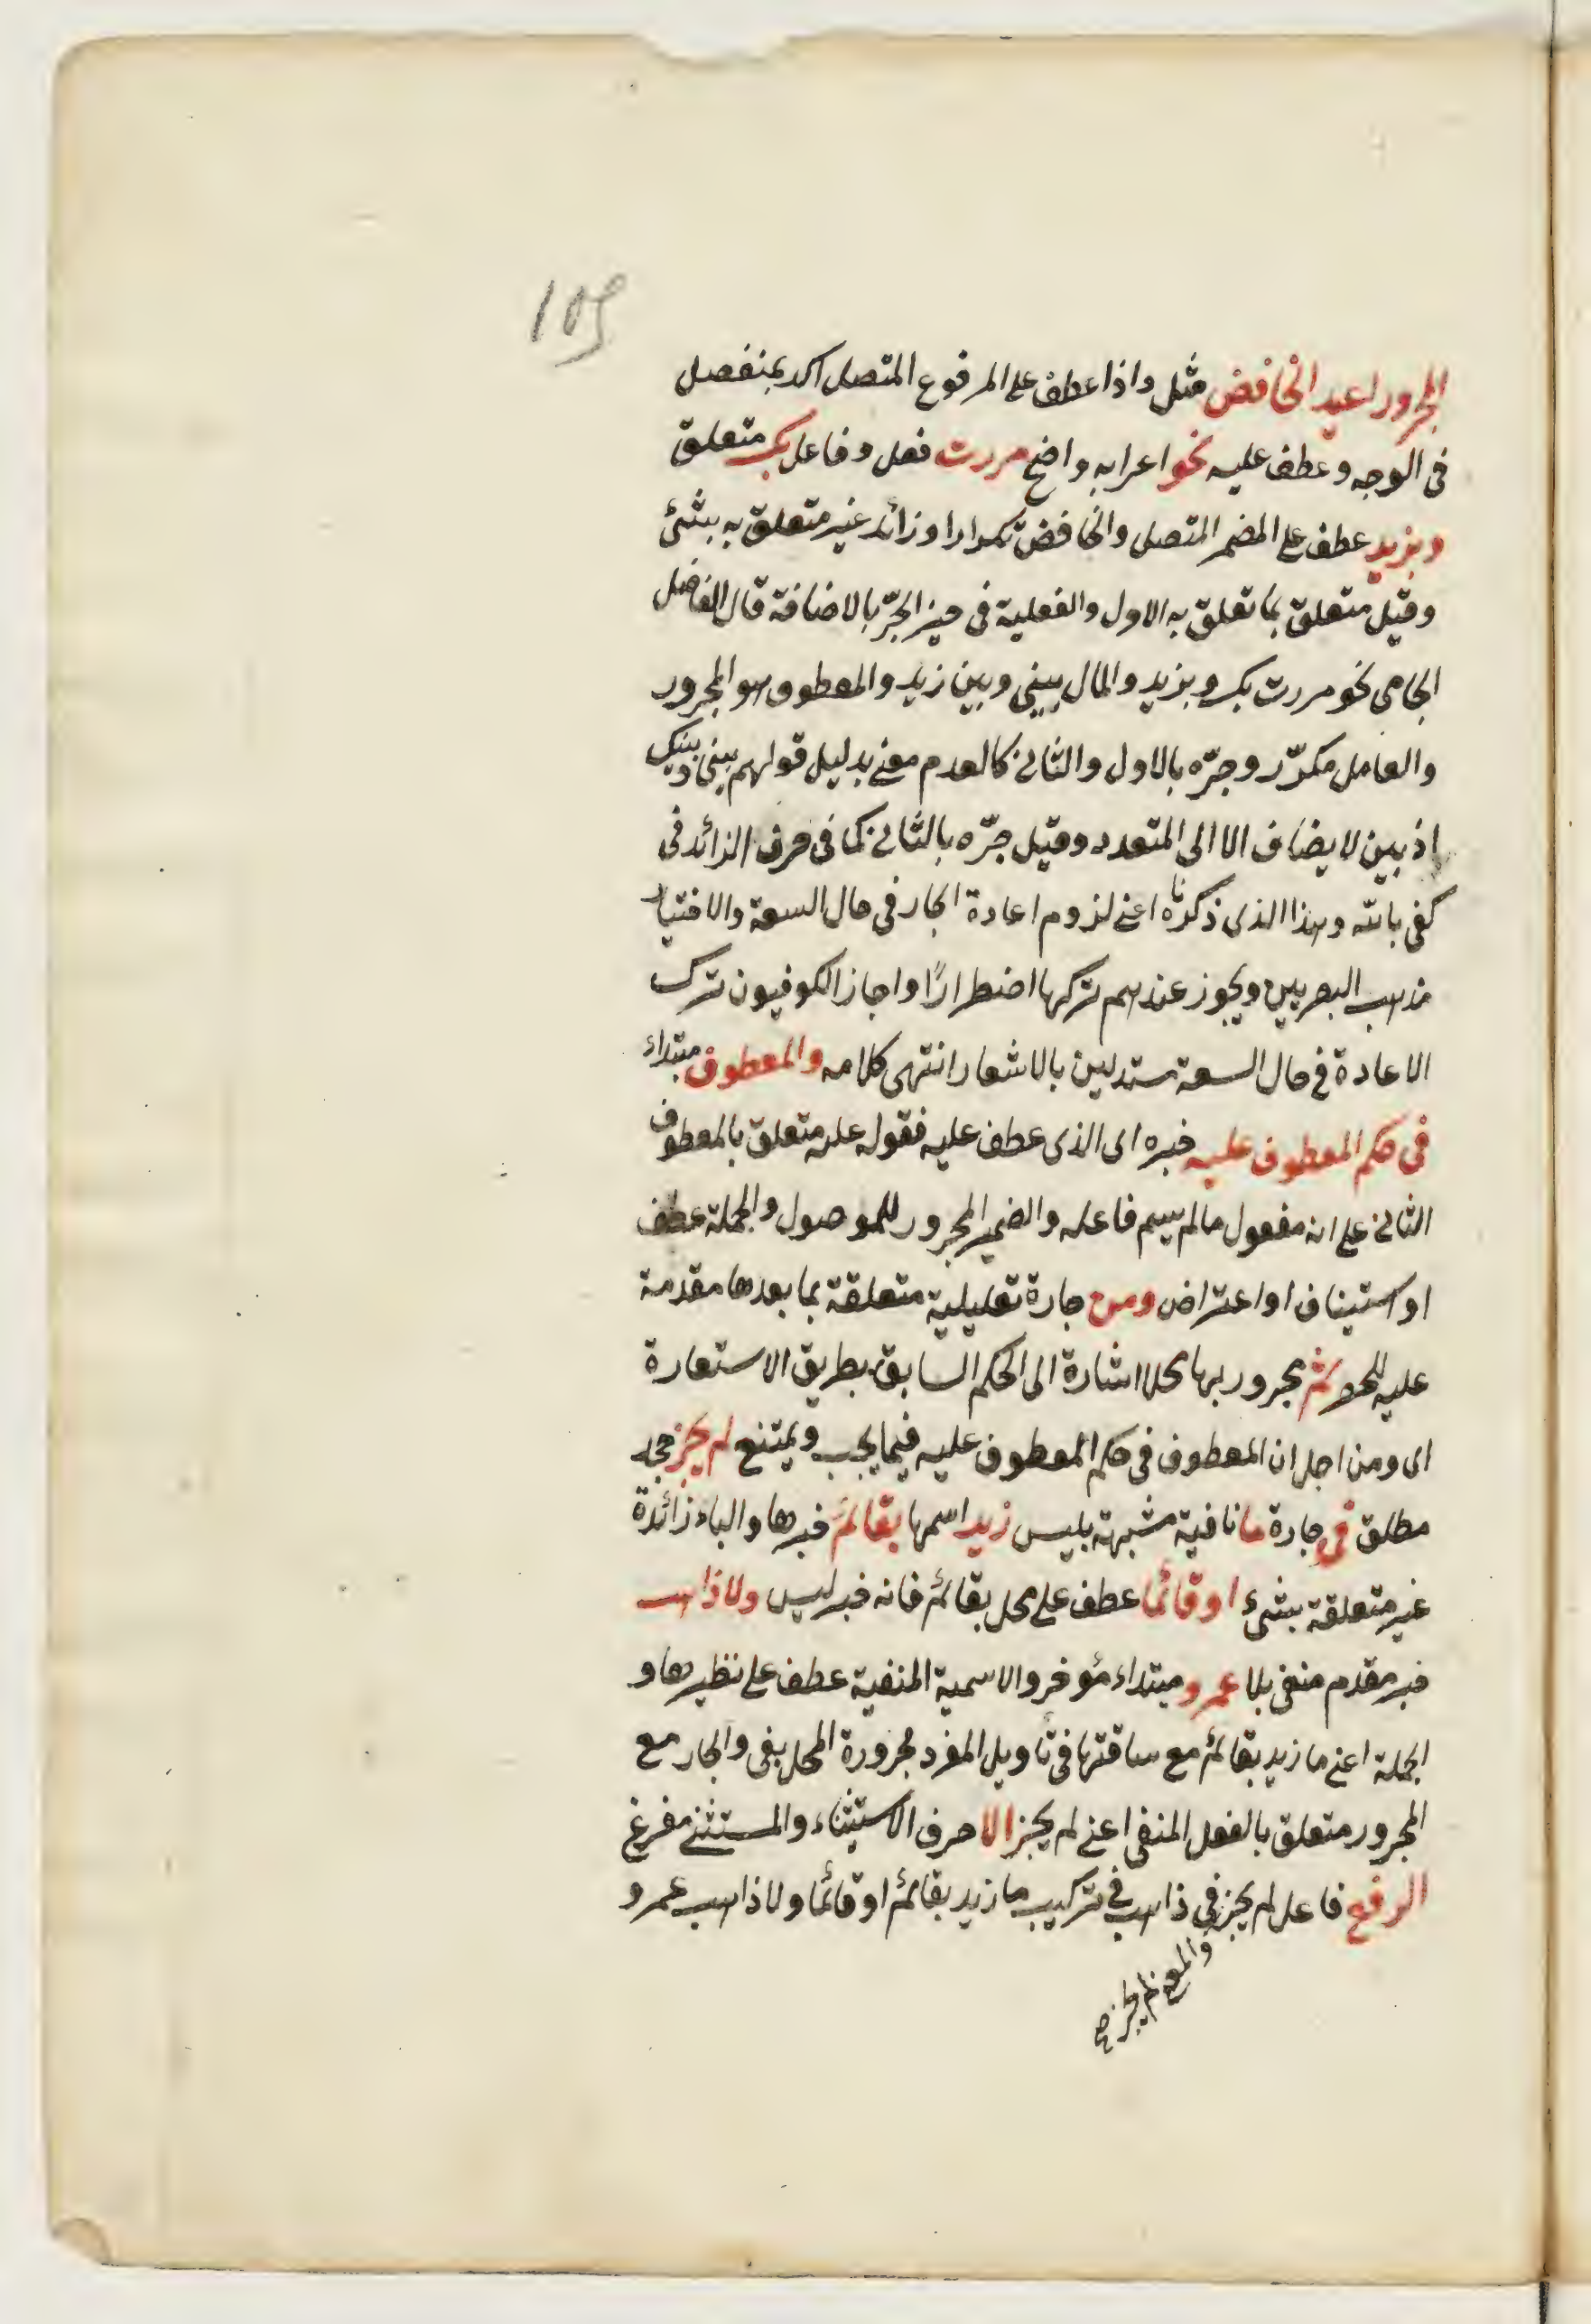 105
المجرور اعيد الخافض مثل واذا عطف على المرفوع المتصل اكد بمنفصل
فى الوجه وعطف عليه نحو اعرابه واضح مررت فعل وفاعل بك متعلق
وبزيد عطف على المضمر المتصل والخافض تكرارا وزائد غير متعلق به بشئ
وقيل متعلق بما تعلق به الاول والفعلية فى حيز الجرّ بالاضافة قال الفاضل
الجامى نحو مررت بك وبزيد والمال بينى وبين زيد والمعطوف هو المجرور
والعامل مكرّر وجرّه بالاول والثانى كالعدم معنى بدليل قولهم بينى وبينك
اذ بين لا يضاف الا الى المتعدد وقيل جرّه بالثانى كما فى حرف الزائد فى
كفى بالله وهذا الذى ذكرناه اعنى لزوم اعادة الجار فى حال السعة والاختيار
مذهب البصريين ويجوز عندهم تركها اضطرارًا واجاز الكوفيون ترك
الاعادة فى حال السعة مستدلين بالاشعار انتهى كلامه والمعطوف مبتداء
فى حكم المعطوف عليه خبره اى الذى عطف عليه فقوله عليه متعلق بالمعطوف
الثانى على انه مفعول ما لم يسم فاعله والضمير المجرور للموصول والجملة عطف
او استيناف او اعتراض ومن جارة تعليلية متعلقة بما بعدها مقدمة
عليه للحصر ثم مجرور بها محلا اشارة الى الحكم السابق بطريق الاستعارة
اى ومن اجل ان المعطوف فى حكم المعطوف عليه فيما يجب ويمتنع لم يجز جحد
مطلق فى جارة ما نافية مشبهة بليس زيد اسمها بقائم خبرها والباء زائدة
غير متعلقة بشئ او قائما عطف على محل بقائم فانه خبر ليس ولا ذاهب
خبر مقدم منفى بلا عمرو مبتداء مؤخر والاسمية المنفية عطف على نظيرها و
الجملة اعنى ما زيد بقائم مع ساقتها فى تاويل المفرد مجرورة المحل بفى والجار مع
المجرور متعلق بالفعل المنفى اعنى لم يجز الا حرف الاستثناء والمستثنى مفرغ
الرفع فاعل لم يجز فى ذاهب فى تركيب ما زيد بقائم او قائما ولا ذاهب عمرو
والمعنى لم يجز فى